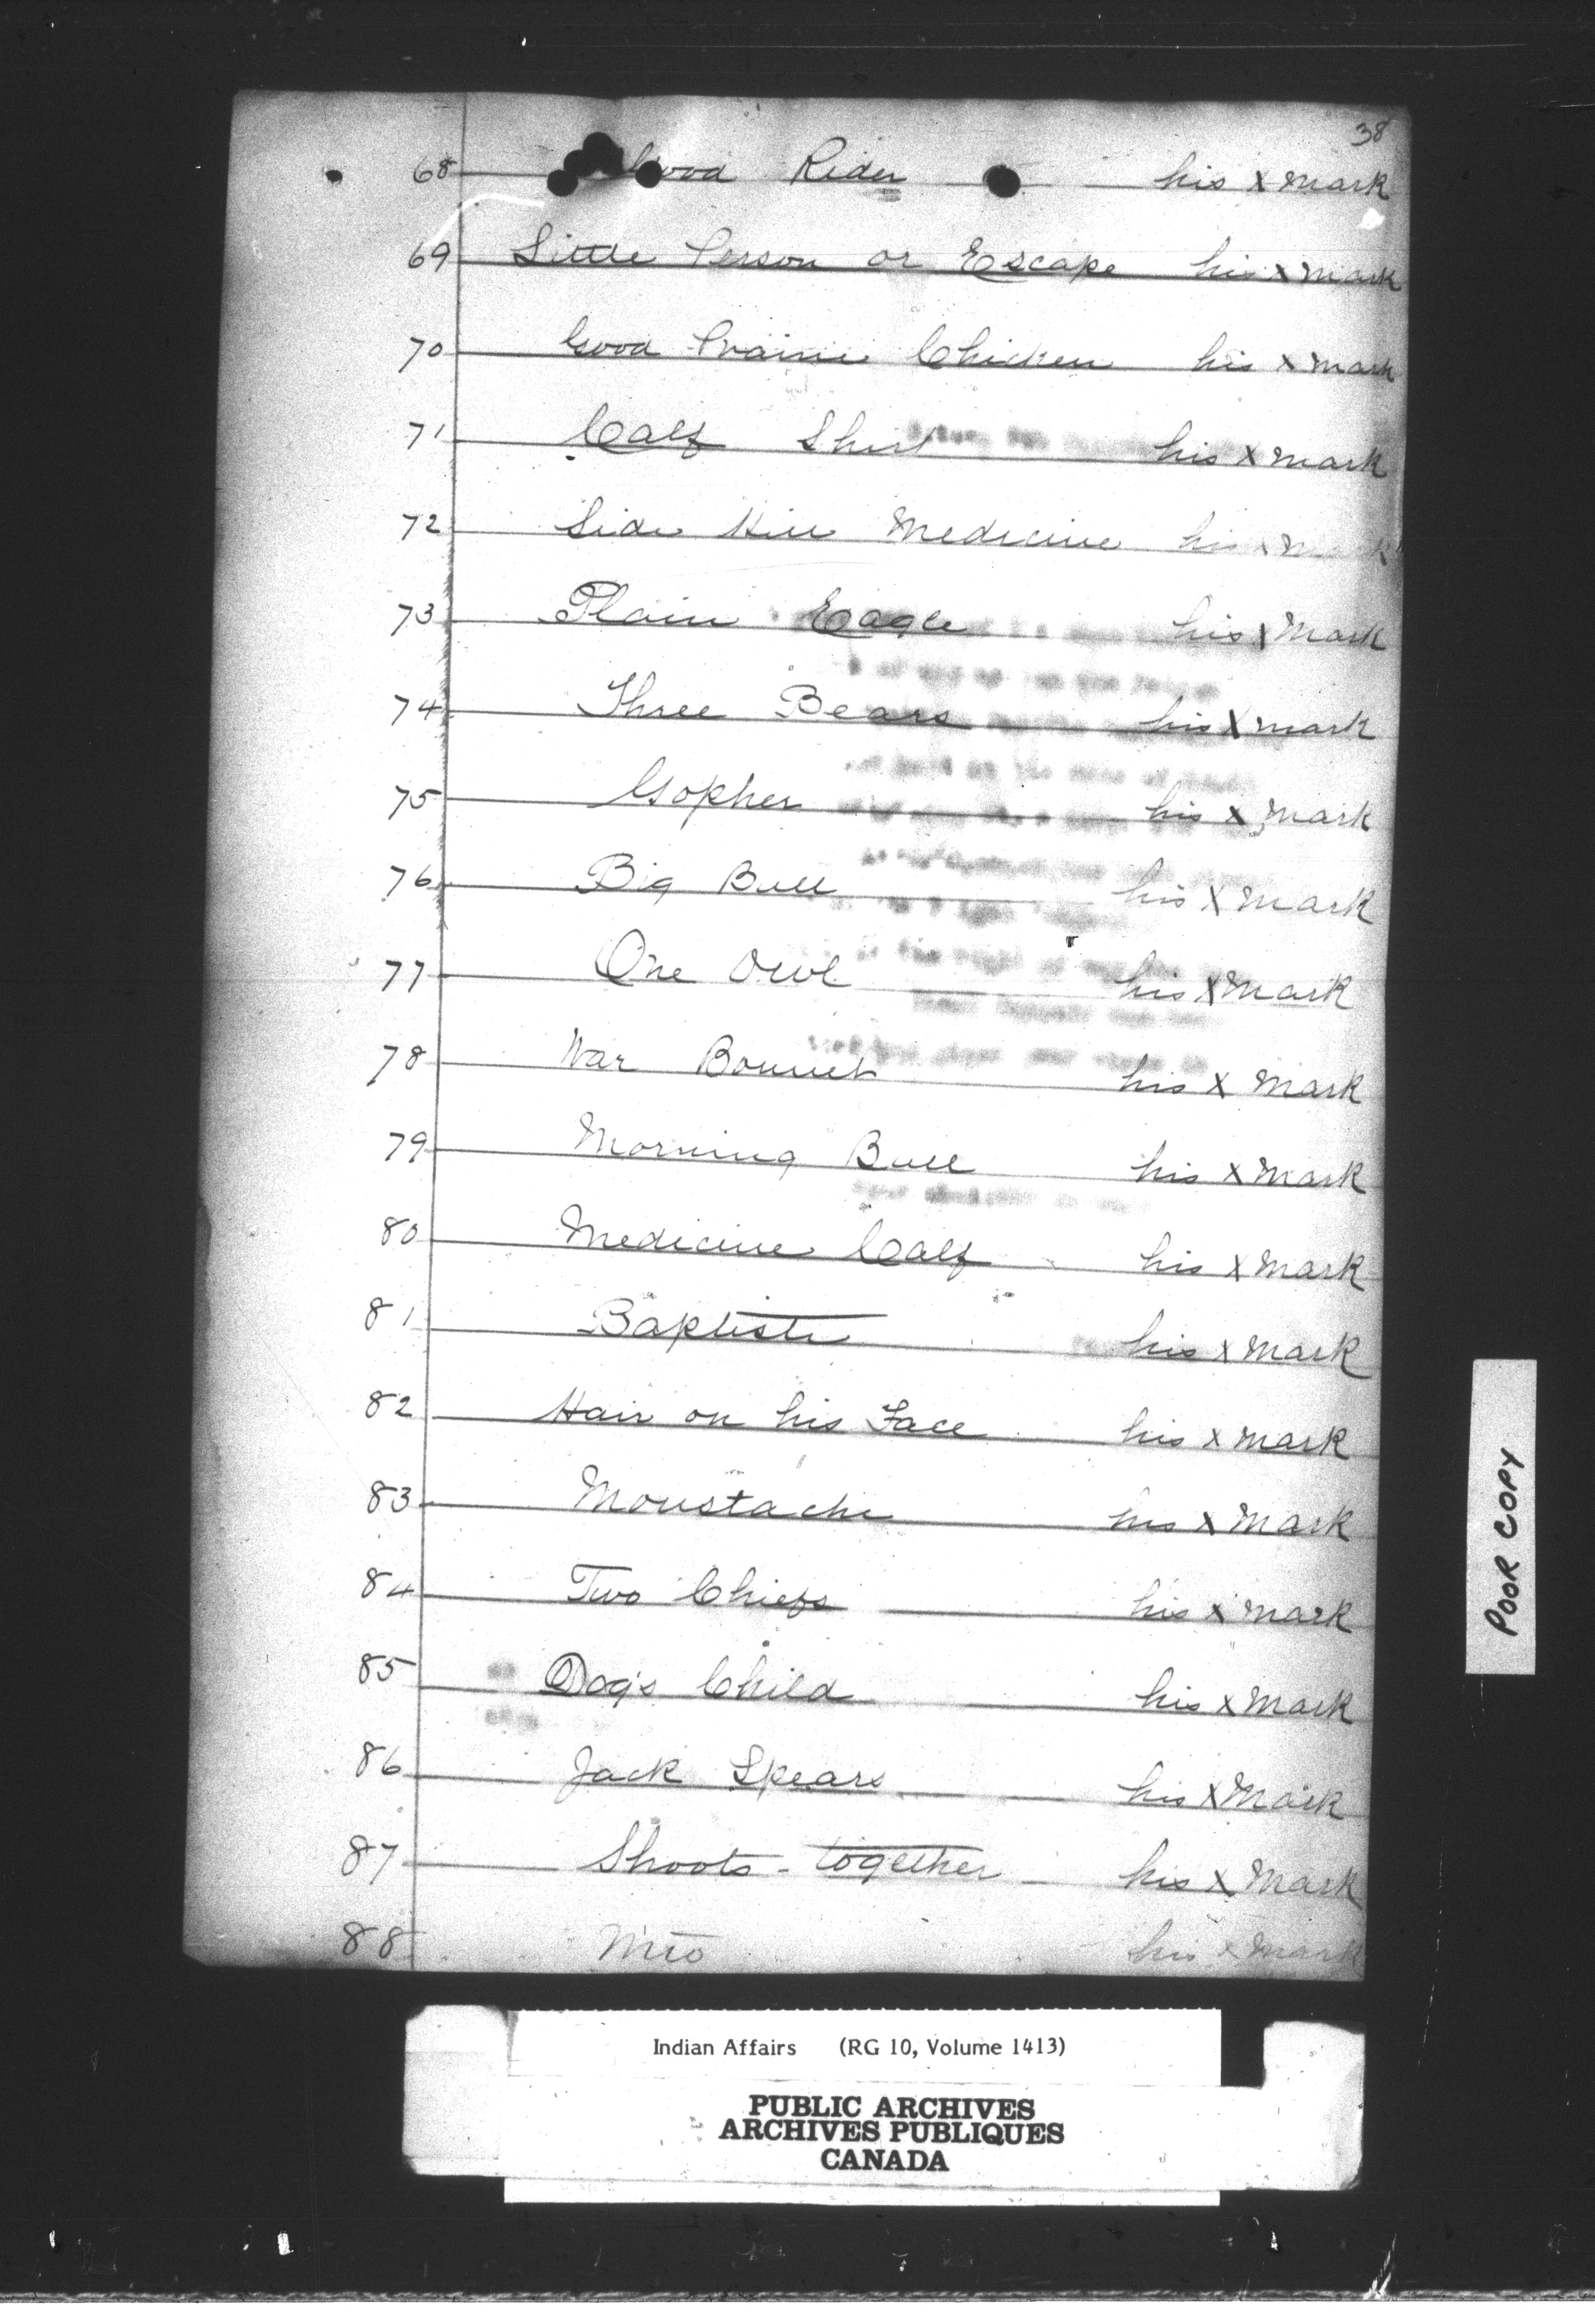 38
68 Good Rider his x mark
69 Little Person or Escape his x mark
70 Good Prairie Chicken his x mark
71 Calf Shirt his x mark
72 Side Hill Medicine his x mark
73 Plain Eagle his x mark
74 Three Bears his x mark
75 Gopher his x mark
76 Big Bull his x mark
77 One Owl his x mark
78 War Bonnet his x mark
79 Morning Bull his x mark
80 Medicine Calf his x mark
81 Baptiste his x mark
82 Hair on his Face his x mark
83 Moustache his x mark
84 Two Chiefs his x mark
85 Dog's Child his x mark
86 Jack Spears his x mark
87 Shoots-together his x mark
88 his x mark
POOR COPY
Indian Affairs (RG 10, Volume 1413)
PUBLIC ARCHIVES
ARCHIVES PUBLIQUES
CANADA